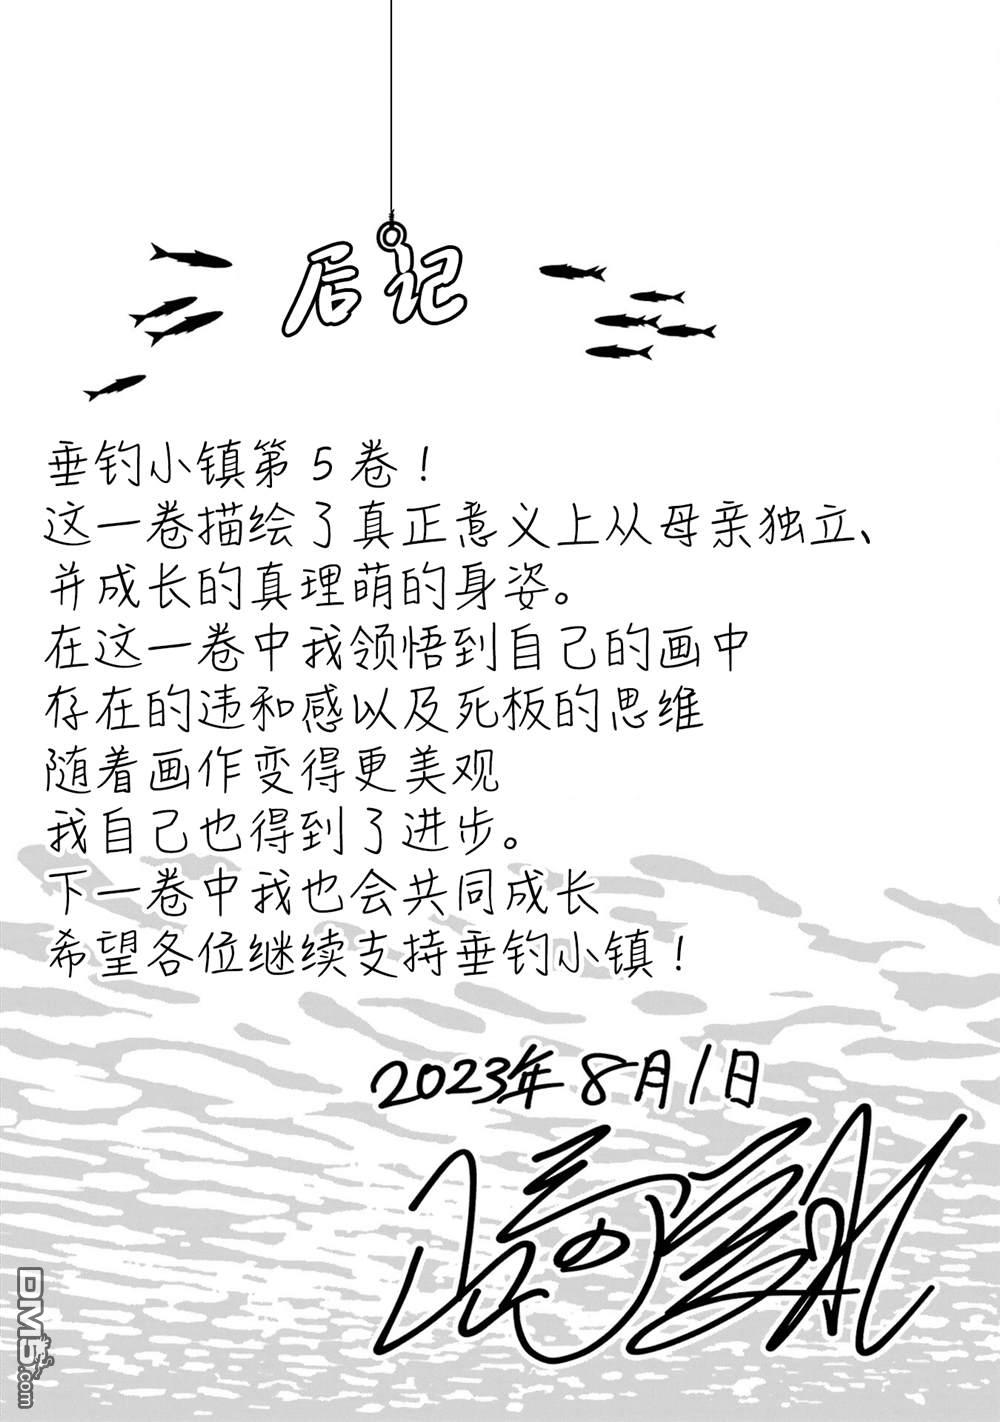 后记
垂钓小镇第5卷！
这一卷描绘了真正意义上从母亲独立、
并成长的真理萌的身姿。
在这一卷中我领悟到自己的画中
存在的违和感以及死板的思维
随着画作变得更美观
我自己也得到了进步。
下一卷中我也会共同成长
希望各位继续支持垂钓小镇！
2023年8月1日
DM5
.com